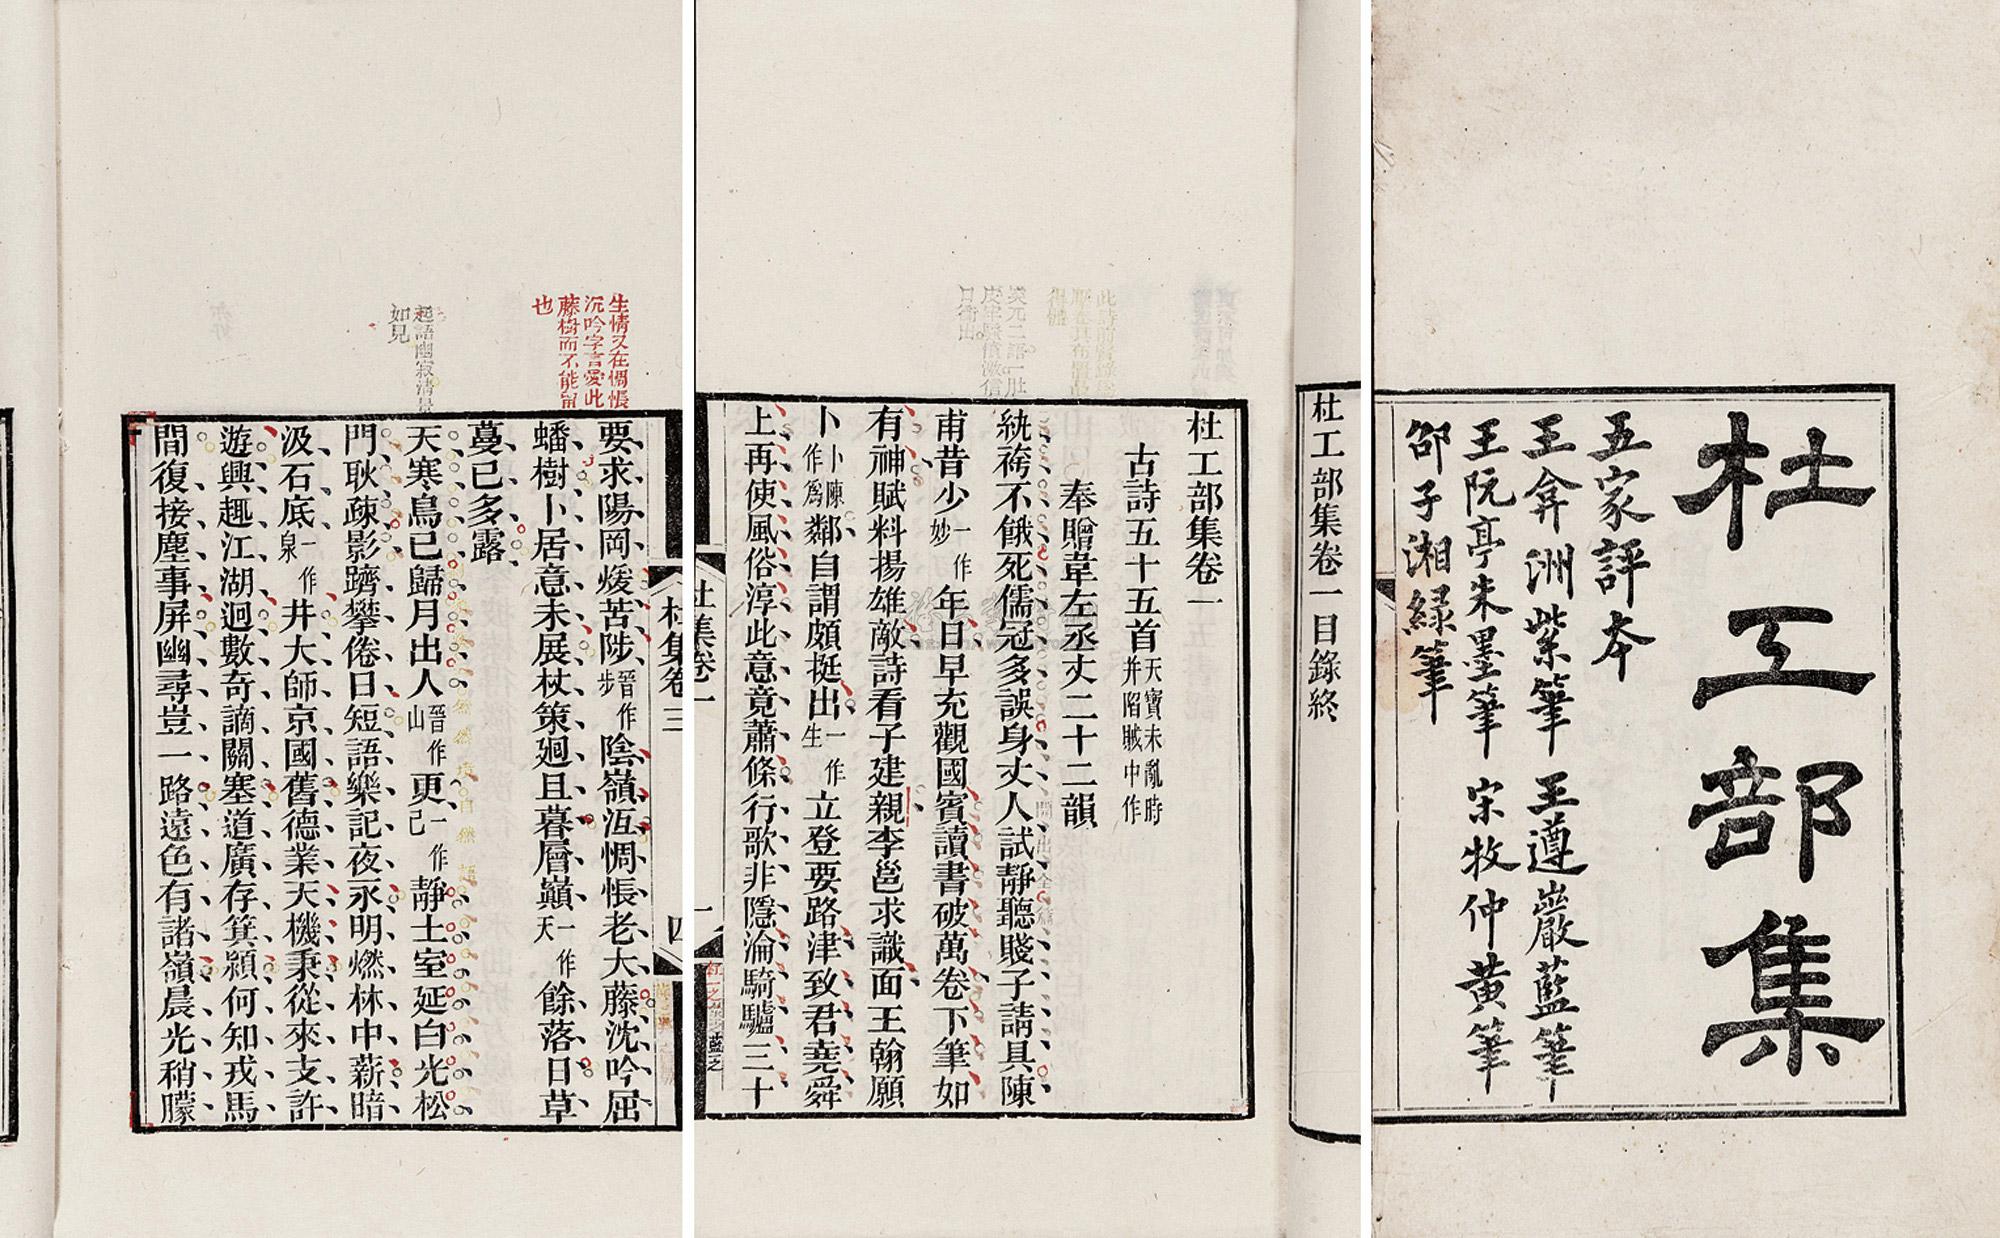 杜工部集
五家評本
王弇洲紫筆　王遵巖藍筆
王阮亭朱墨筆　宋牧仲黃筆
邵子湘綠筆
杜工部集卷一目錄終
杜工部集卷一
古詩五十五首天寶未亂時并陷賊中作
奉贈韋左丞丈二十二韻
紈袴不餓死儒冠多誤身丈人試靜聽賤子請具陳
甫昔少一作妙年日早充觀國賓讀書破萬卷下筆如
有神賦料揚雄敵詩看子建親李邕求識面王翰願
卜卜陳作爲鄰自謂頗挺出一作生立登要路津致君堯舜
上再使風俗淳此意竟蕭條行歌非隱淪騎驢三十
杜集卷一
一
此詩前賢錄
得體
杜集卷三
四
生情又在惆悵
沉吟字言愛此
藤樹而不能留
也
要求陽岡煖苦陟晉作步陰嶺沍惆悵老大藤沈吟屈
蟠樹卜居意未展杖策廻且暮層巔一作天餘落日草
蔓已多露
起語幽寂清
如見
天寒鳥已歸月出人晉作山更一作已靜土室延白光松
門耿疎影躋攀倦日短語樂記夜永明燃林中薪暗
汲石底一作泉井大師京國舊德業天機秉從來支許
遊興趣江湖迥數奇謫關塞道廣存箕潁何知戎馬
間復接塵事屏幽尋豈一路遠色有諸嶺晨光稍朦